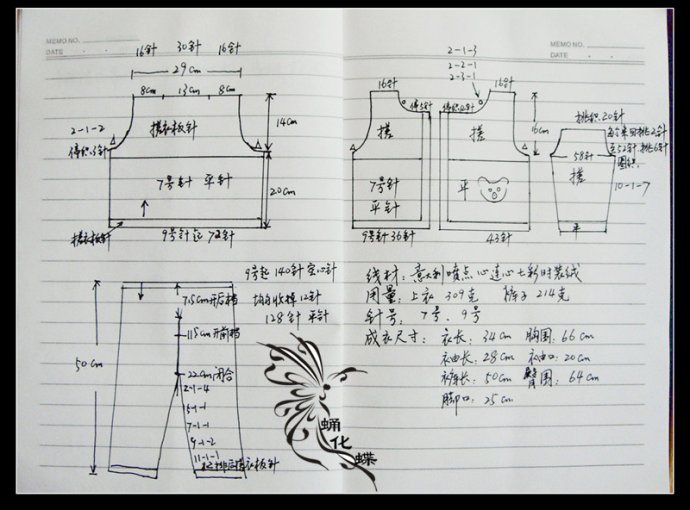 MEMO NO.
DATE
MEMO NO.
DATE
16针 30针 16针
29cm
8cm 13cm 8cm
搓衣板针
14cm
2-1-2
停织3针
7号针 平针
20cm
搓衣板针
9号针起 72针
2-1-3
2-2-1
2-3-1
16针
停5针
搓
7号针
平针
9号针36针
16针
停织12针
搓
16cm
平
43针
挑织20针
每个来回挑2针
至52针,挑6针
圈织.
58针
搓
10-1-7
平
9号起 140针 空心针
均匀收掉12针
128针 平针
7.5cm开后裆
11.5cm开前裆
22cm闭合
2-1-4
5-1-1
7-1-1
9-1-2
11-1-1
50cm
搓衣板针
线材:意大利喷点心连心七彩时装绒
用量:上衣 309克 裤子 214克
针号: 7号、9号
成衣尺寸: 衣长: 34cm 胸围: 66cm
袖长: 28cm 袖口: 20cm
裤长: 50cm 臀围: 64cm
脚口: 25cm
蛹
化
蝶